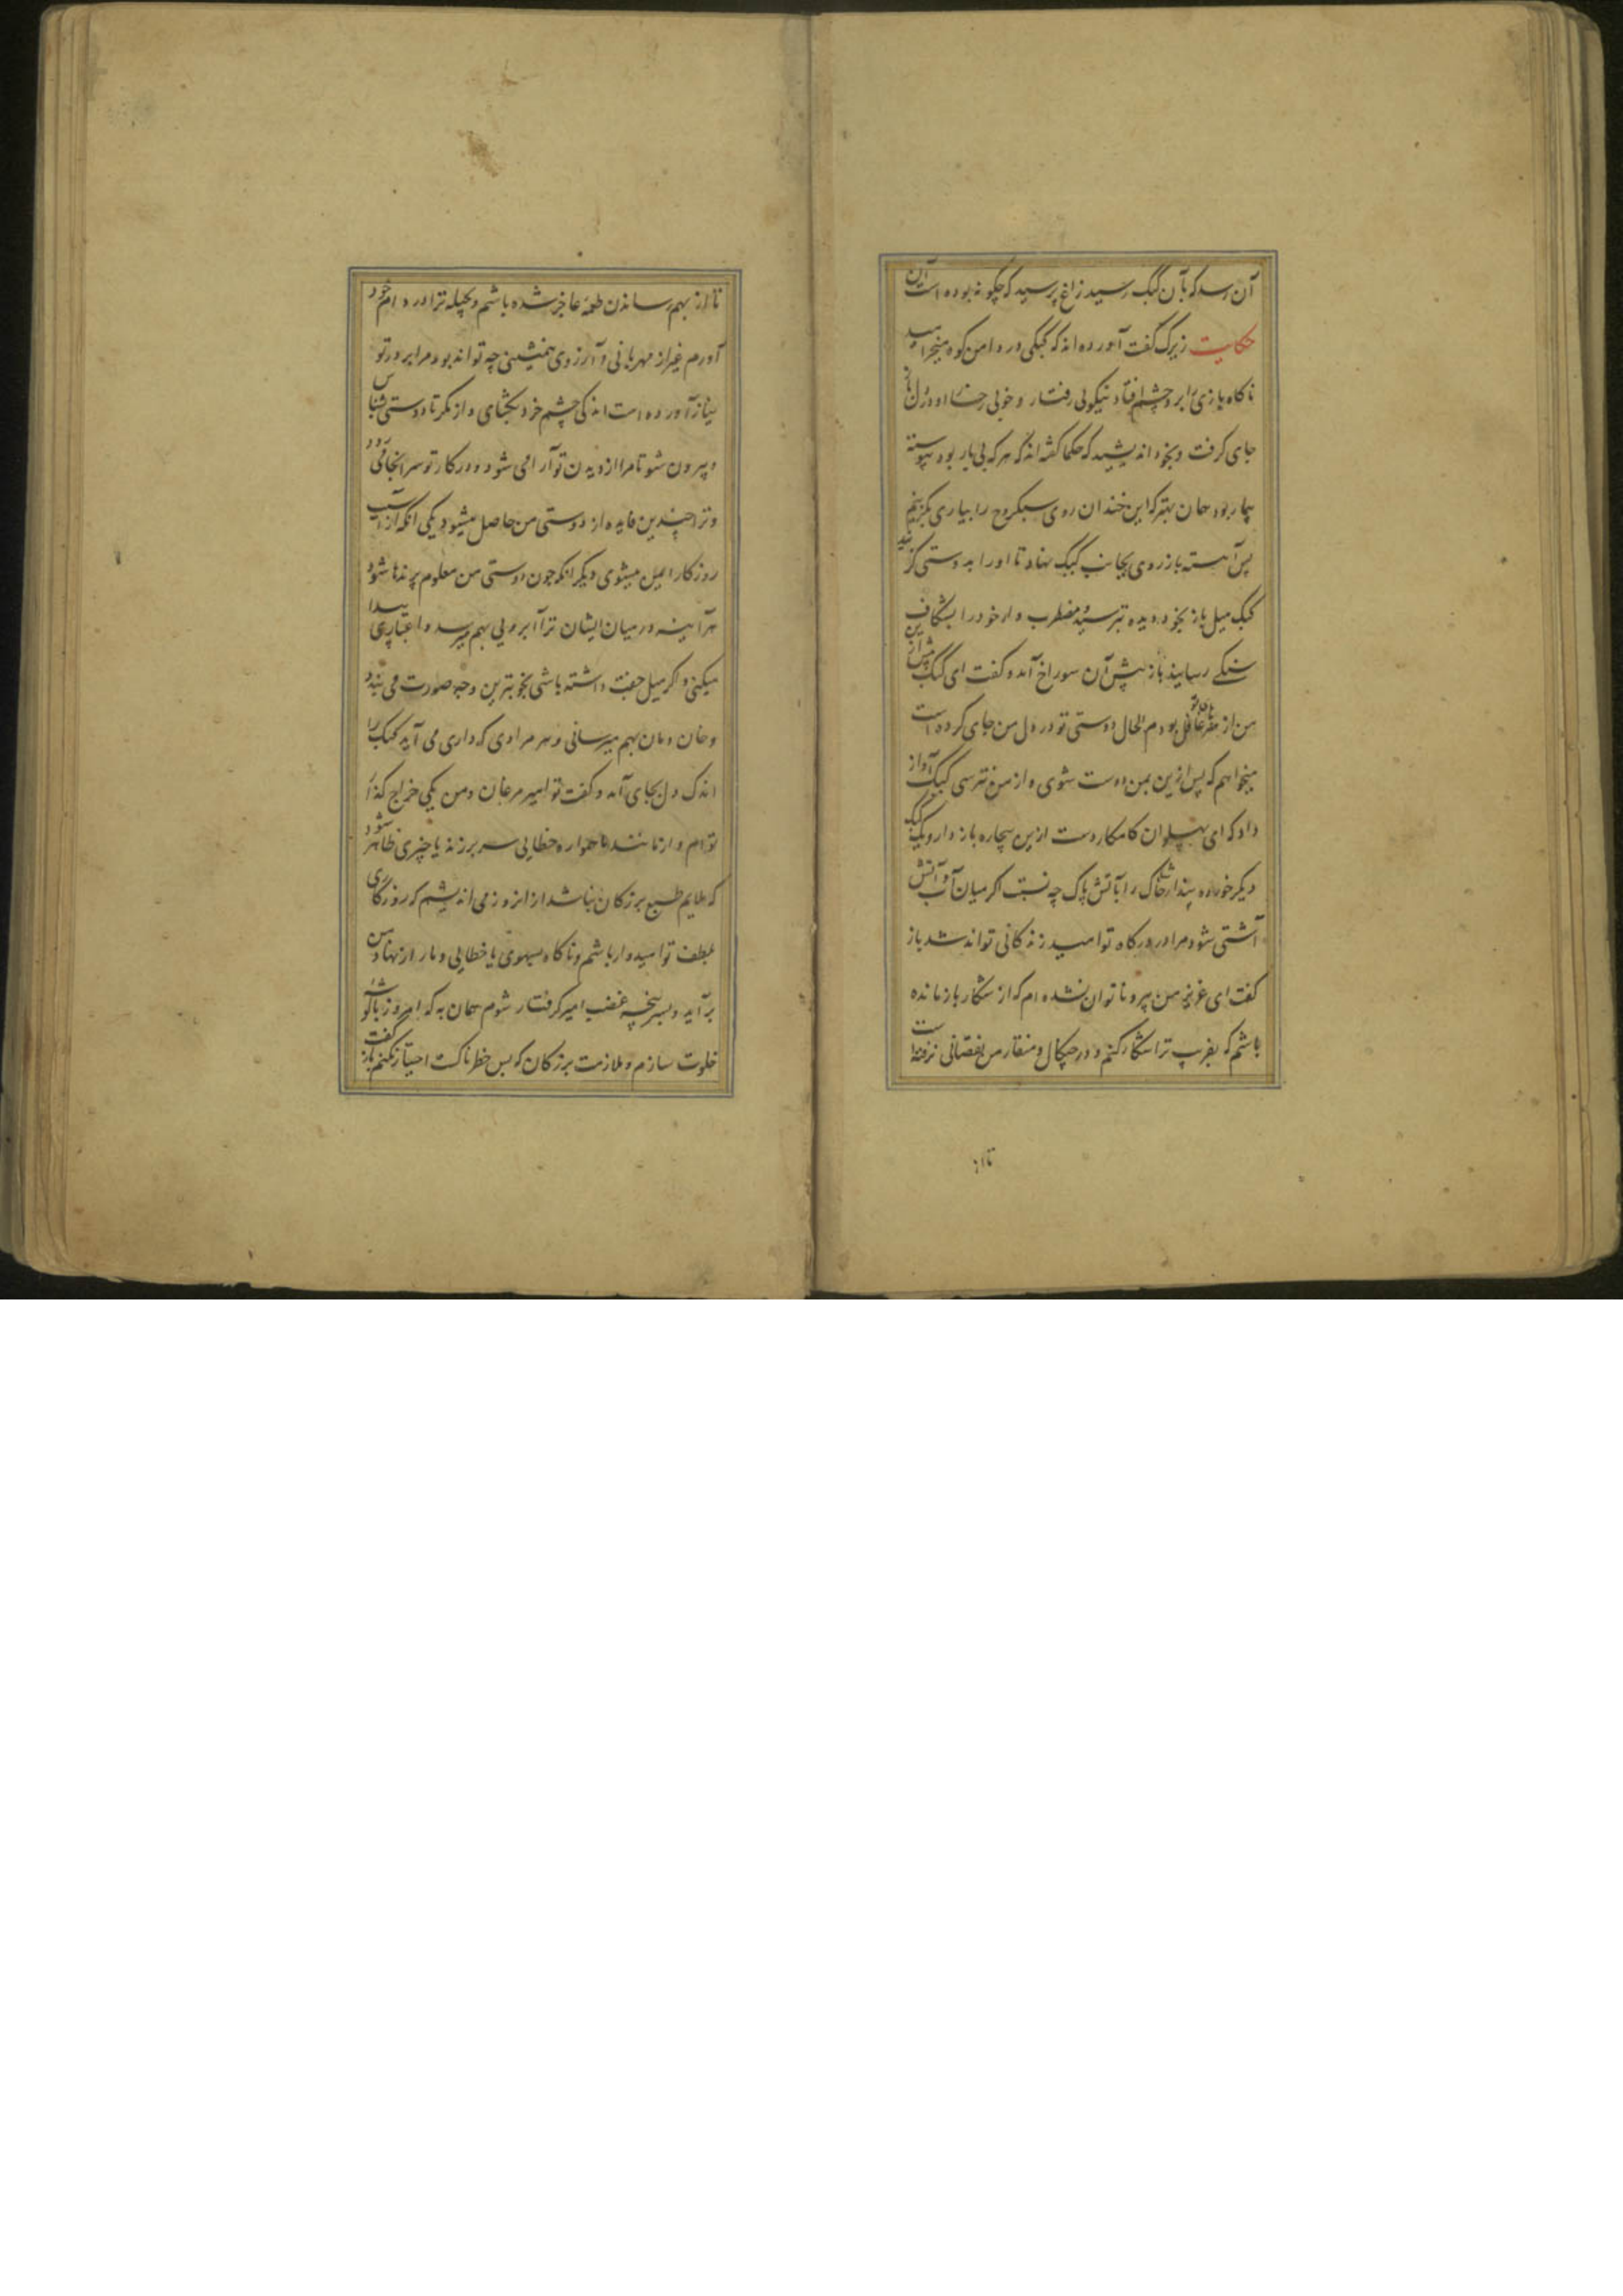 آن رسد که بآن کبک رسید زاغ پرسید که چگونه بوده است آن
حکایت زیرک گفت آورده اند که کبکی در دامن کوه میخرامید
ناگاه بازی را بر و چشم افتاد نیکوئی رفتار و خوبی رخسار او در دل باز
جای گرفت و بخود اندیشید که حکما گفته اند که هر که بی یار بود پیوسته
بیمار بود همان بهتر که این خندان روی سبکروح را بیاری بگزینم
پس آهسته باز روی بجانب کبک نهاد تا او را بدوستی گزید
کبک میل باز بخود دیده بترسید و مضطرب وار خود را بشکاف
سنگی رسانید باز پیش آن سوراخ آمد و گفت ای کبک پیش ازین
من از هنرهای تو غافل بودم الحال دوستی تو در دل من جای کرده است
میخواهم که پس ازین بمن دوست شوی و از من نترسی کبک آواز
داد که ای پهلوان کامکار دست ازین بیچاره باز دار و کبک
دیگر خورده پندار خاشاک را با آتش پاک چه نسبت اگر میان آب و آتش
آشتی شود مرا در درگاه تو امید زندگانی تواند شد باز
گفت ای عزیز من پیر و ناتوان نشده ام که از شکار باز مانده
باشم که بفریب ترا شکار کنم و در چنگال و منقار من نقصانی نرفته است
تا از
تا از بهم رساندن طعمه عاجز شده باشم و بحیله ترا در دام خود
آورم غیر از مهربانی و آرزوی همنشینی چه تواند بود مرا بر در تو
نیاز آورده است اندکی چشم خرد بگشای و از مکر تا دوستی شناس
و بیرون شو تا مرا از دیدن تو آرامی شود و در کار تو سرانجامی رود
و ترا چندین فایده از دوستی من حاصل میشود یکی آنکه از آسیب
روزگار ایمن میشوی دیگر آنکه چون دوستی من معلوم پرندها شود
هر آینه در میان ایشان ترا آبرویی بهم میرسد و اعتباری پیدا
میکنی و اگر میل جفت داشته باشی بخوبترین وجه صورت می بندد
و خان و مان بهم میرسانی و هر مرادی که داری می آید کبک را
اندک دل بجای آمد و گفت تو امیر مرغان و من یکی خراج گذار
توام و از مانند ما همواره خطایی سر بر زند یا چیزی ظاهر شود
که ملایم طبع بزرگان نباشد از انروز می اندیشم که روزگاری
بلطف تو امیدوار باشم و ناگاه سهوی یا خطایی دمار از نهاد من
برآید و بسرپنجه غضب امیر گرفتار شوم همان به که امروز با گوشه
خلوت سازم و ملازمت بزرگان که بس خطرناکست احتیاز نکنم باز گفت